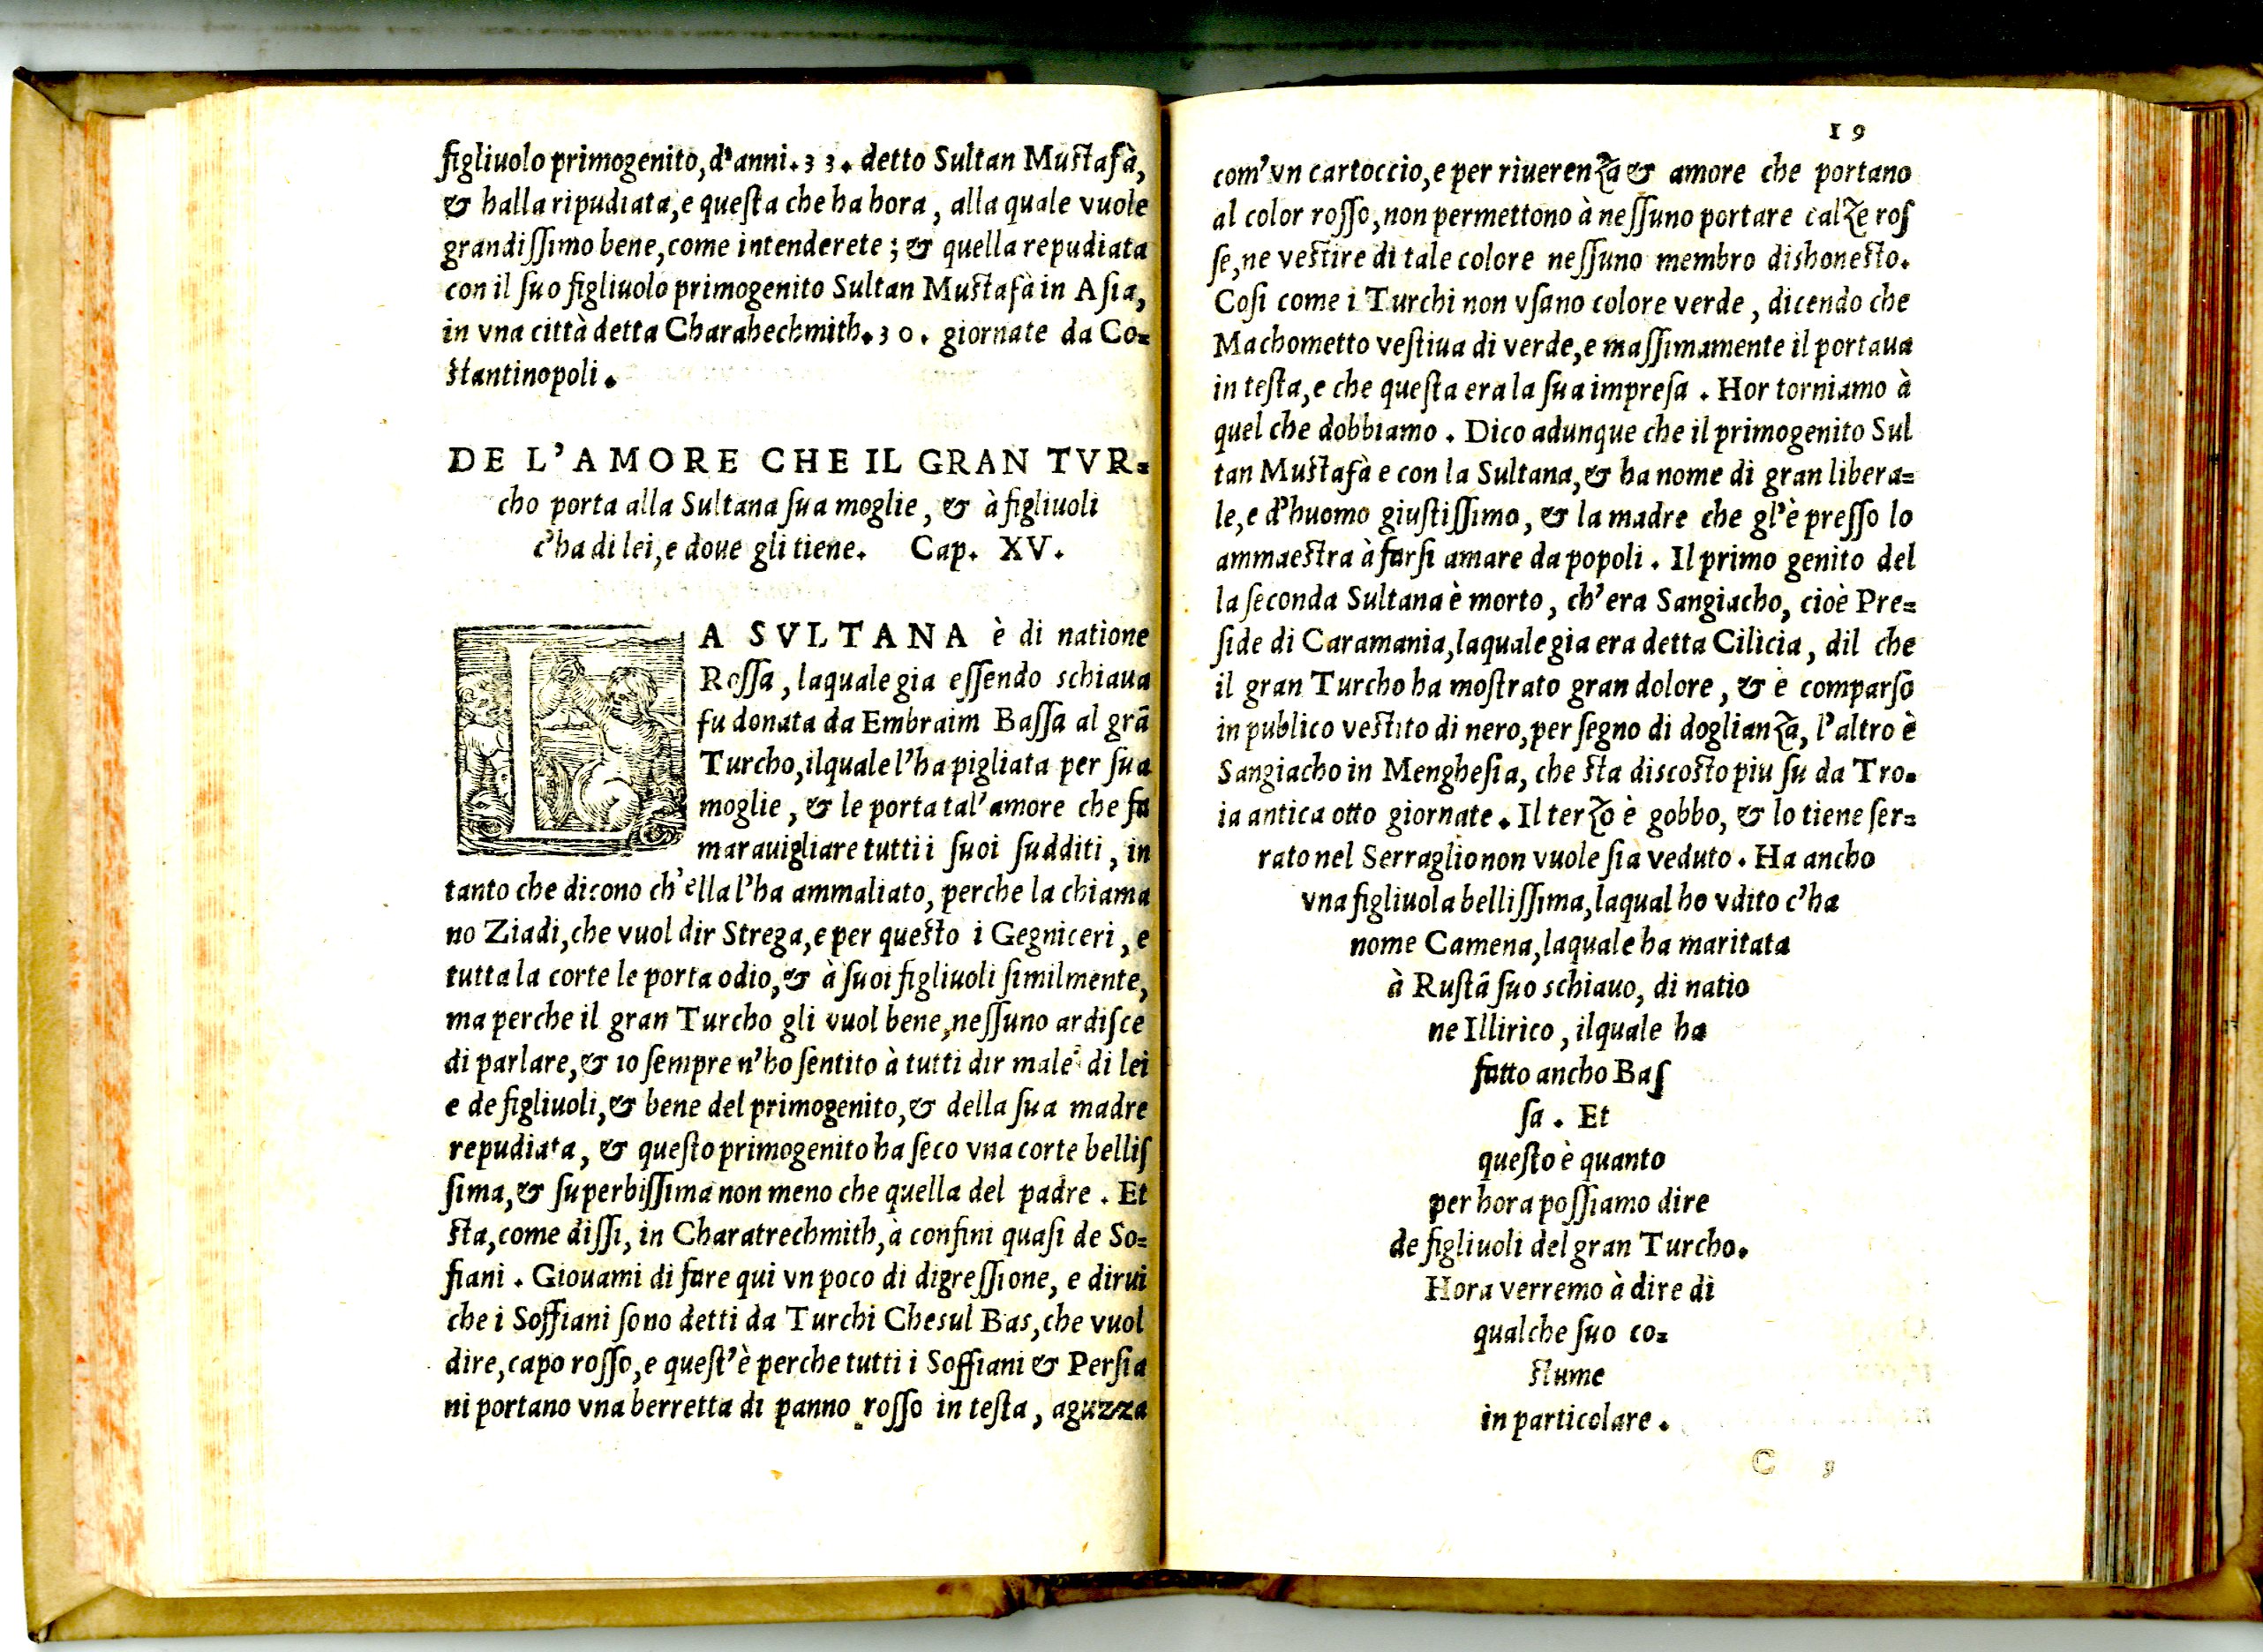 figliuolo primogenito, d'anni. 33. detto Sultan Mustafà,
& halla ripudiata, e questa che ha hora, alla quale vuole
grandissimo bene, come intenderete; & quella repudiata
con il suo figliuolo primogenito Sultan Mustafà in Asia,
in vna città detta Charahechmith. 30. giornate da Co=
stantinopoli.
DE L'AMORE CHE IL GRAN TVR=
cho porta alla Sultana sua moglie, & à figliuoli
c'ha di lei, e doue gli tiene. Cap. XV.
LA SVLTANA è di natione
Rossa, laquale gia essendo schiaua
fu donata da Embraim Bassa al grã
Turcho, ilquale l'ha pigliata per sua
moglie, & le porta tal'amore che fa
marauigliare tutti i suoi sudditi, in
tanto che dicono ch'ella l'ha ammaliato, perche la chiama
no Ziadi, che vuol dir Strega, e per questo i Gegniceri, e
tutta la corte le porta odio, & à suoi figliuoli similmente,
ma perche il gran Turcho gli vuol bene, nessuno ardisce
di parlare, & io sempre n'ho sentito à tutti dir male di lei
e de figliuoli, & bene del primogenito, & della sua madre
repudiata, & questo primogenito ha seco vna corte bellis
sima, & superbissima non meno che quella del padre. Et
sta, come dissi, in Charatrechmith, à confini quasi de So=
fiani. Giouami di fare qui vn poco di digressione, e dirui
che i Soffiani sono detti da Turchi Chesul Bas, che vuol
dire, capo rosso, e quest'è perche tutti i Soffiani & Persia
ni portano vna berretta di panno rosso in testa, aguzza
19
com'vn cartoccio, e per riuerenza & amore che portano
al color rosso, non permettono à nessuno portare calze ros
se, ne vestire di tale colore nessuno membro dishonesto.
Cosi come i Turchi non vsano colore verde, dicendo che
Machometto vestiua di verde, e massimamente il portaua
in testa, e che questa era la sua impresa. Hor torniamo à
quel che dobbiamo. Dico adunque che il primogenito Sul
tan Mustafà e con la Sultana, & ha nome di gran libera=
le, e d'huomo giustissimo, & la madre che gl'è presso lo
ammaestra à farsi amare da popoli. Il primo genito del
la seconda Sultana è morto, ch'era Sangiacho, cioè Pre=
side di Caramania, laquale gia era detta Cilicia, dil che
il gran Turcho ha mostrato gran dolore, & è comparso
in publico vestito di nero, per segno di doglianza, l'altro è
Sangiacho in Menghesia, che sta discosto piu su da Tro=
ia antica otto giornate. Il terzo è gobbo, & lo tiene ser=
rato nel Serraglio non vuole sia veduto. Ha ancho
vna figliuola bellissima, laqual ho vdito c'ha
nome Camena, laquale ha maritata
à Rustã suo schiauo, di natio
ne Illirico, ilquale ha
fatto ancho Bas
sa. Et
questo è quanto
per hora possiamo dire
de figliuoli del gran Turcho.
Hora verremo à dire di
qualche suo co=
stume
in particolare.
C